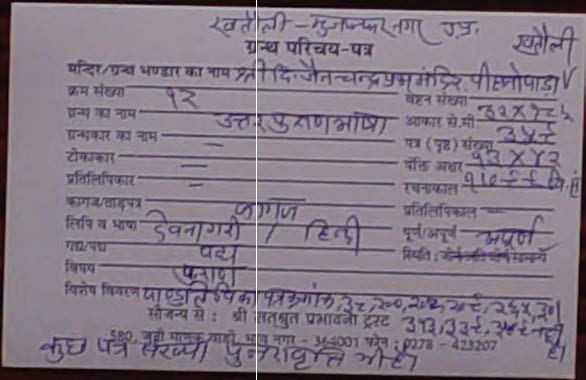 खतौली - मुजफ्फरनगर उ.प्र. खतौली
ग्रन्थ परिचय-पत्र
मन्दिर/ग्रन्थ भण्डार का नाम श्री दि. जैन चन्द्रप्रभु मंदिर
क्रम संख्या १२ वेष्टन संख्या
ग्रन्थ का नाम उत्तरपुराण भाषा आकार से.मी.
ग्रन्थकार का नाम — पत्र (पृष्ठ) संख्या ३५८
टीकाकार — पंक्ति अक्षर १३ X ४२
प्रतिलिपिकार — रचनाकाल
कागज/ताड़पत्र कागज प्रतिलिपिकाल —
लिपि व भाषा देवनागरी / हिन्दी पूर्ण/अपूर्ण अपूर्ण
गद्य/पद्य पद्य स्थिति :
विषय पुराण
विशेष विवरण पाण्डुलिपि का पत्र क्रमांक
सौजन्य से : श्री सत्श्रुत प्रभावना ट्रस्ट
580, जूनी माणक वाडी, भाव नगर - 364001 फोन : 0278 - 423207
कुछ पत्र संख्या पुनरावृत्ति भी है।